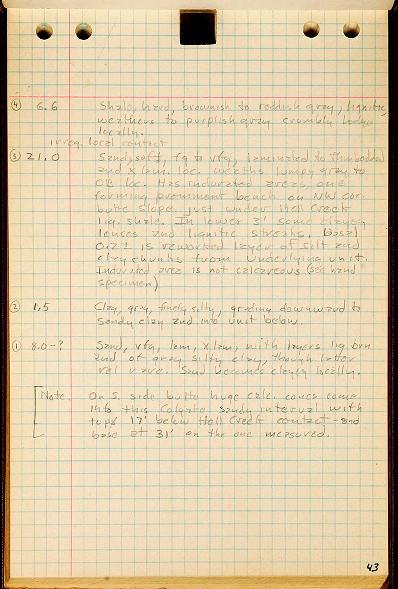 ④ 6.6 Shale, hard, brownish to reddish gray, lignitic,
weathers to purplish gray crumbly
locally.
irreg. local contact
③ 21.0 Sand, soft, fg to vfg, laminated to thin bedded
and x lam. loc. weaths lumpy gray to
OB loc. Has indurated areas, one
forming prominent bench on NW cor.
butte slope just under Hell Creek
lig. shale. In lower 3' some clayey
lenses and lignitic streaks. Basal
0.2± is reworked layer of silt and
clay chunks from underlying unit.
Indurated area is not calcareous (see hand
specimen)
② 1.5 Clay, gray, finely silty, grading downward to
sandy clay and into unit below.
① 8.0-? Sand, vfg, lam, x lam, with layers lig brn
and of gray silty clay, though latter
rel rare. Sand becomes clayey locally.
Note. On S. side butte huge calc. concs come
into this Colgate sandy interval with
tops 17' below Hell Creek contact - and
base at 31' on the one measured.
43